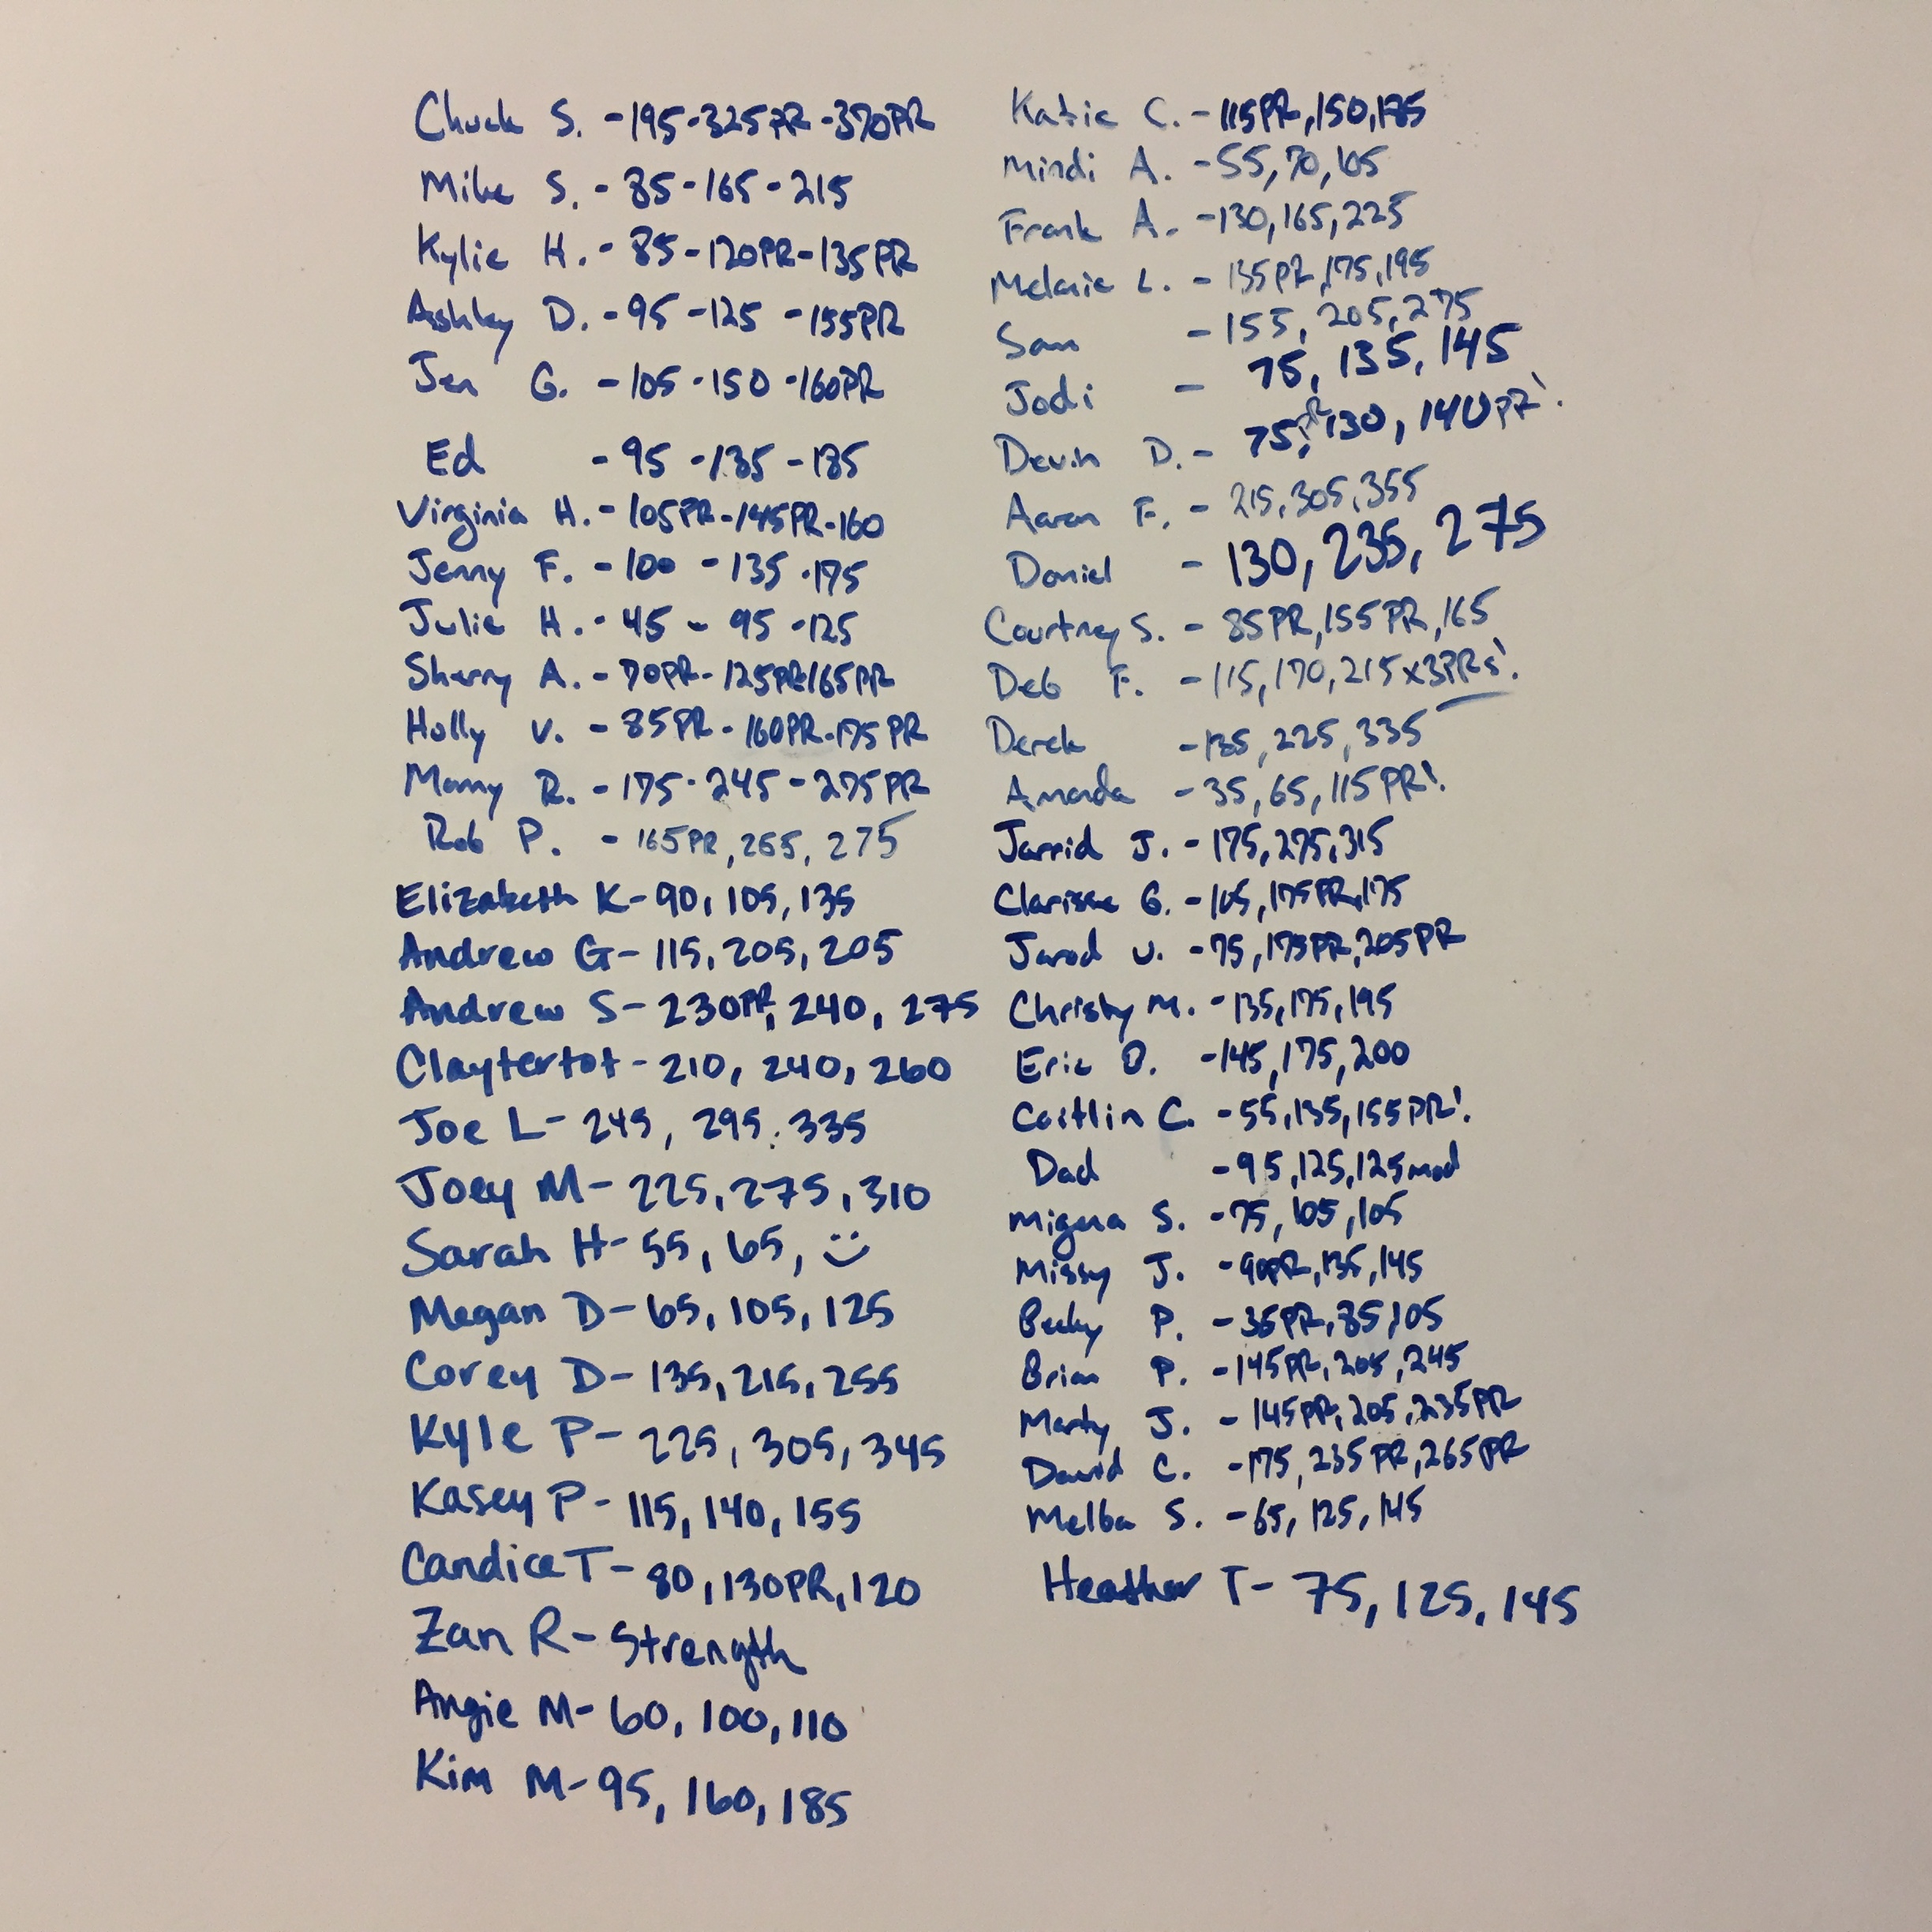 Chuck S. - 195 - 325PR - 370PR
Mike S. - 85 - 165 - 215
Kylie H. - 85 - 120PR - 135PR
Ashley D. - 95 - 125 - 155PR
Jen G. - 105 - 150 - 160PR
Ed - 95 - 135 - 185
Virginia H. - 105PR - 145PR - 160
Jenny F. - 100 - 135 - 175
Julie H. - 45 - 95 - 125
Sherry A. - 70PR - 125PR 165PR
Holly V. - 85PR - 160PR - 175PR
Manny R. - 175 - 245 - 275PR
Rob P. - 165PR, 255, 275
Elizabeth K - 90, 105, 135
Andrew G - 115, 205, 205
Andrew S - 230PR, 240, 275
Claytertot - 210, 240, 260
Joe L - 245, 295, 335
Joey M - 225, 275, 310
Sarah H - 55, 65, :)
Megan D - 65, 105, 125
Corey D - 135, 215, 255
Kyle P - 225, 305, 345
Kasey P - 115, 140, 155
Candice T - 80, 130PR, 120
Zan R - Strength
Angie M - 60, 100, 110
Kim M - 95, 160, 185
Katie C. - 115PR, 150, 185
Mindi A. - 55, 70, 105
Frank A. - 130, 165, 225
Melanie L. - 135PR, 175, 195
Sam - 155, 205, 275
Jodi - 75, 135, 145
Devin D. - 75PR, 130, 140PR!
Aaron F. - 215, 305, 355
Daniel - 130, 235, 275
Courtney S. - 85PR, 155PR, 165
Deb F. - 115, 170, 215 x3PRs!
Derek - 135, 225, 335
Amanda - 35, 65, 115PR!
Jarrid J. - 175, 275, 315
Clarisse G. - 105, 175PR, 175
Jarod V. - 75, 175PR, 205PR
Christy M. - 135, 175, 195
Eric D. - 145, 175, 200
Caitlin C. - 55, 135, 155PR!
Dad - 95, 125, 125mod
Migna S. - 75, 105, 105
Missy J. - 90PR, 135, 145
Becky P. - 35PR, 85, 105
Brian P. - 145PR, 205, 245
Marty J. - 145PR, 205, 235PR
David C. - 175, 235PR, 265PR
Melba S. - 65, 125, 145
Heather T - 75, 125, 145